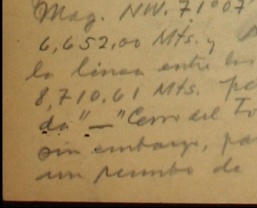 Mag. NW. 71°07'
6,652.00 Mts. y
la linea entre los
8,710.61 Mts. pe
da" — "Cerro del To
sin embargo, pa
un rumbo de